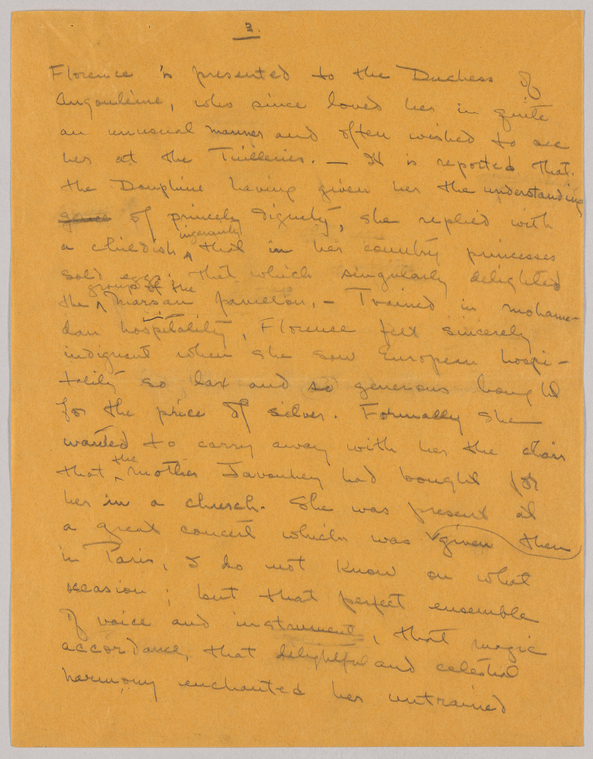 3.
Florence is presented to the Duchess of
Angouleine, who since loved her in quite
an unusual manner and often wished to see
her at the Tuilleries. — It is reported that
the Dauphine having given her the understanding
gave of princely dignity, she replied with
ingenuity
a childish ^ that in her country princesses
sold eggs; that which singularly delighted
group of the
the ^ Marsan pavilion. — Trained in mohame-
dan hospitality, Florence felt sincerely
indignent when she saw European hospi-
tality so lax and so generous bought
for the price of silver. Formally she
wanted to carry away with her the chair
the
that ^ mother Javouhey had bought for
her in a church. She was present at
a great concert which was given then
in Paris, I do not know on what
occasion; but that perfect ensemble
of voice and instrument, that magic
accordance, that delightful and celestial
harmony enchanted her untrained